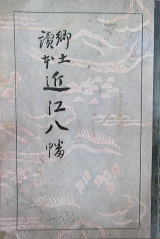 郷土
讀本
近江八幡